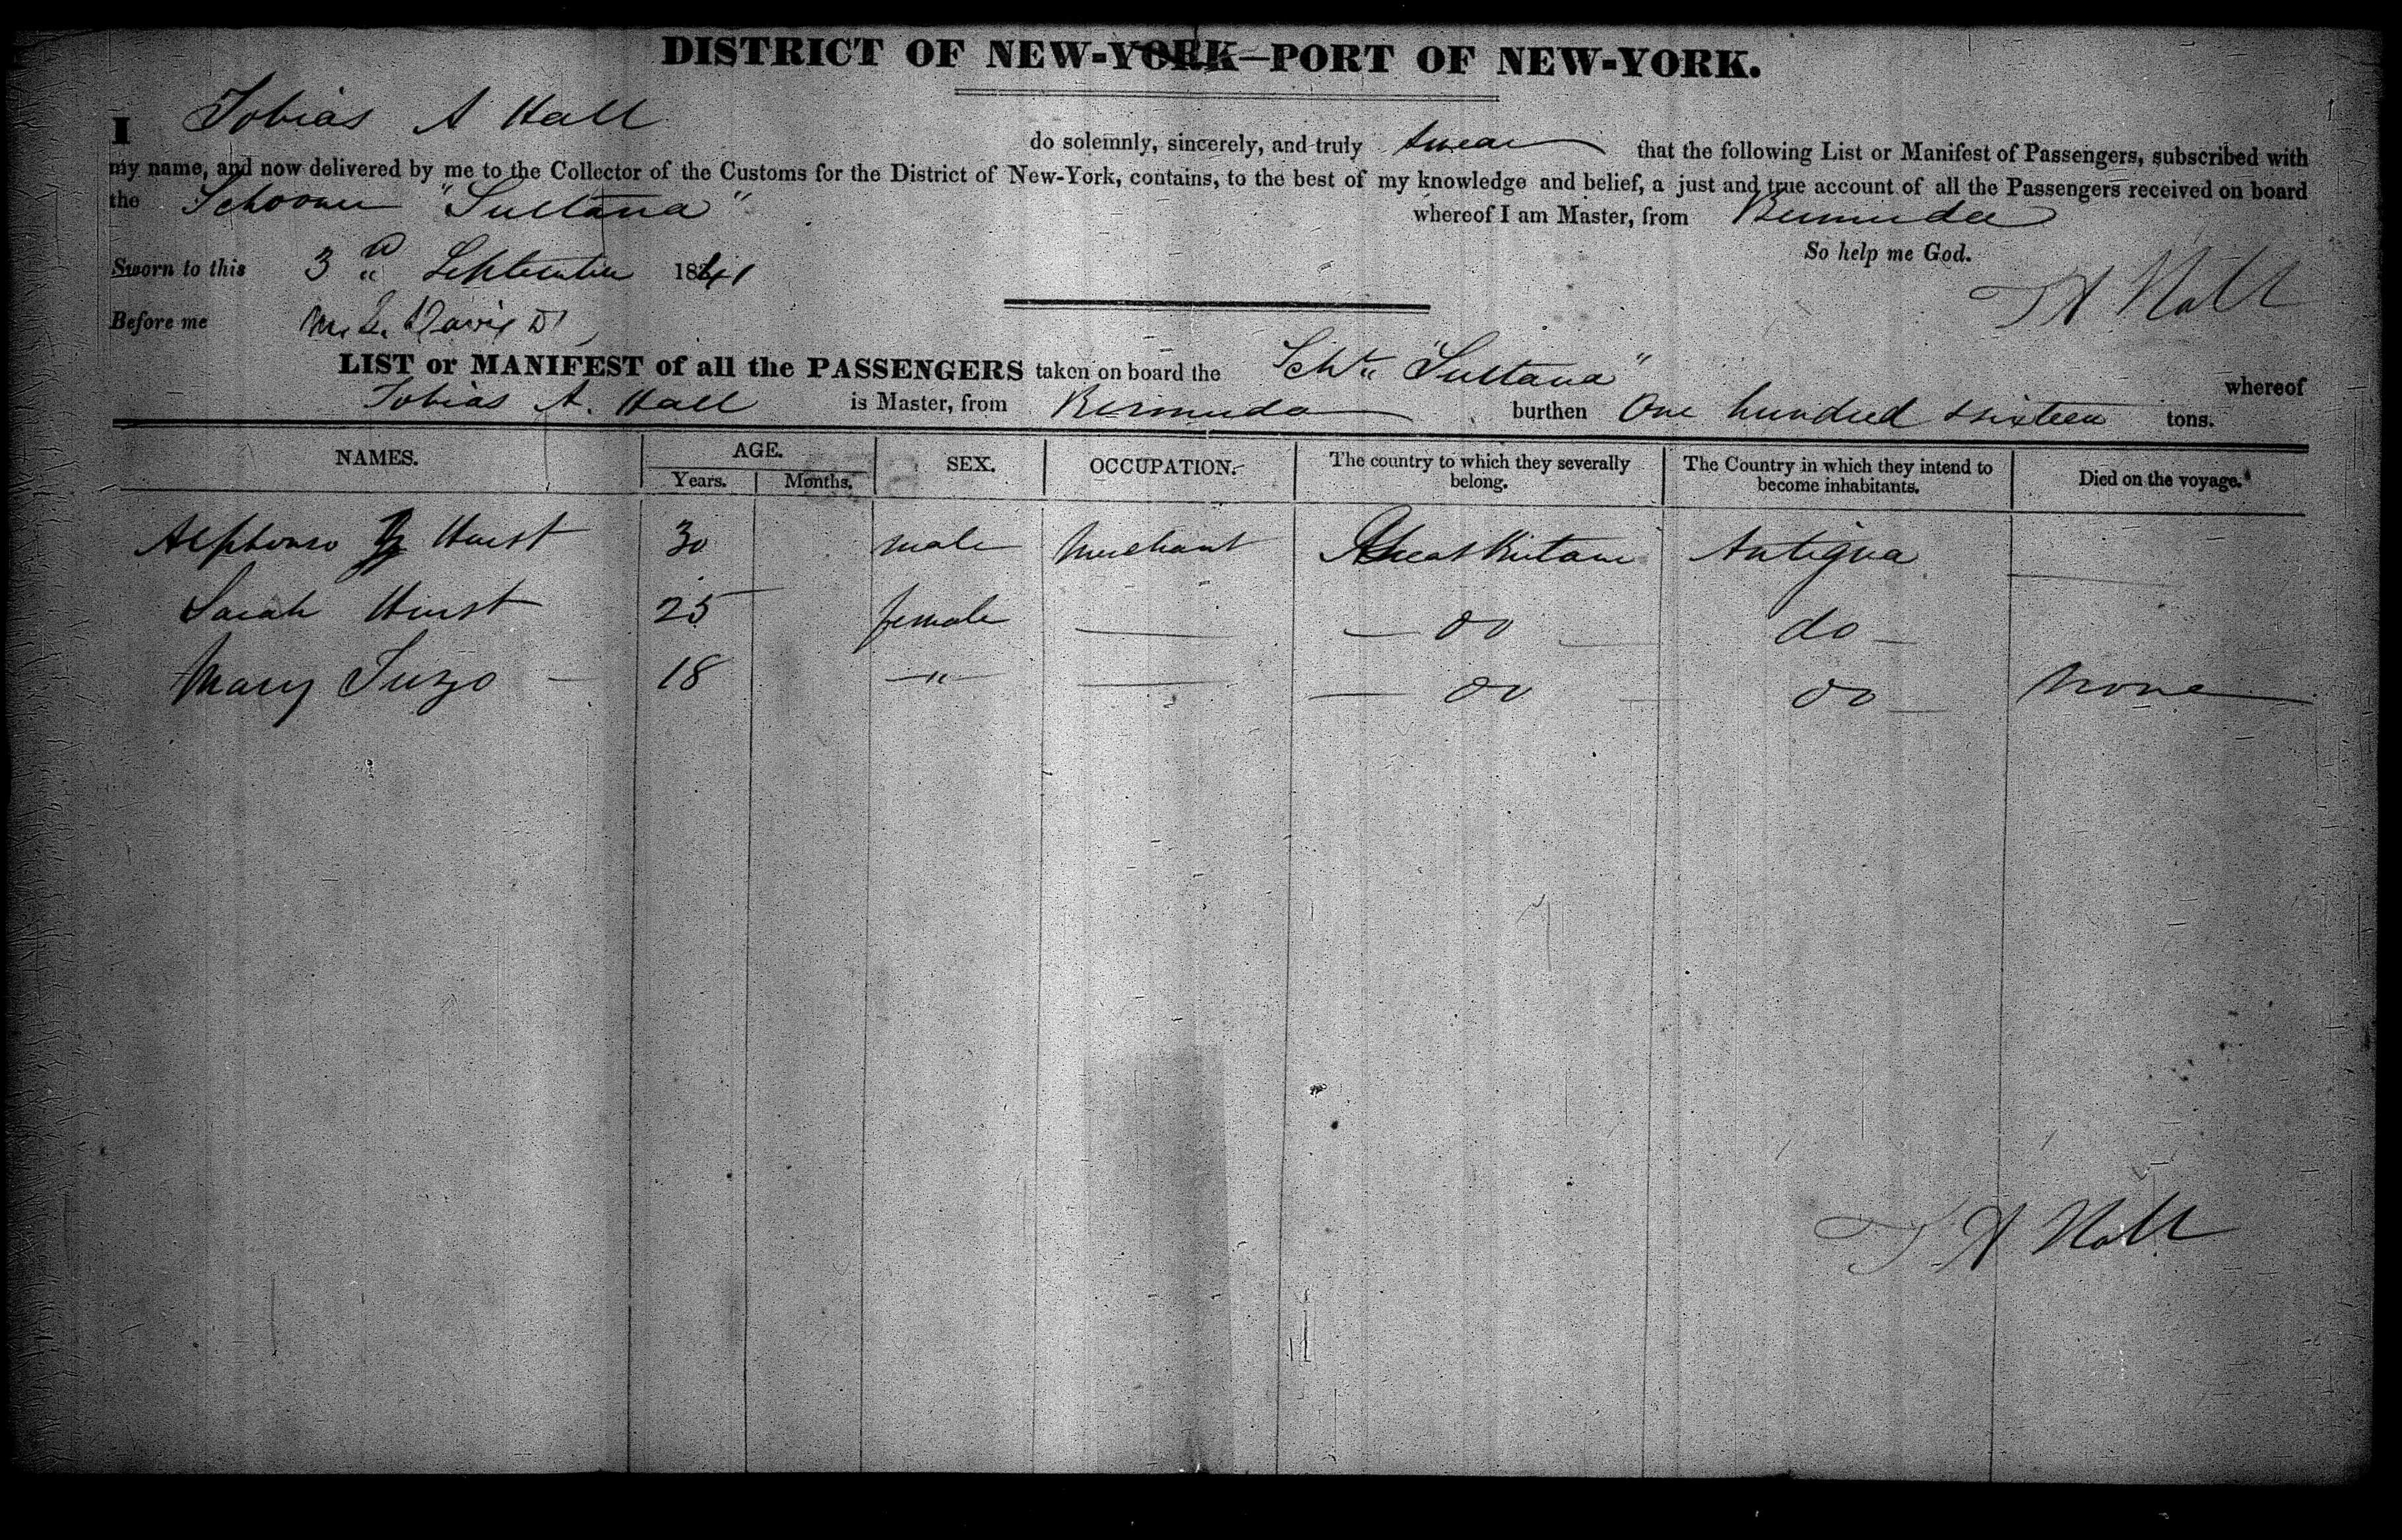 DISTRICT OF NEW-YORK—PORT OF NEW-YORK.
I Tobias A Hall do solemnly, sincerely, and truly swear that the following List or Manifest of Passengers, subscribed with
my name, and now delivered by me to the Collector of the Customs for the District of New-York, contains, to the best of my knowledge and belief, a just and true account of all the Passengers received on board
the Schooner "Sultana" whereof I am Master, from Bermuda
So help me God.
Sworn to this 3d September 1841
T A Hall
Before me M. L. Davis
LIST or MANIFEST of all the PASSENGERS taken on board the Schr "Sultana" whereof
Tobias A. Hall is Master, from Bermuda burthen One hundred & sixteen tons.
NAMES. AGE. SEX. OCCUPATION. The country to which they severally belong. The Country in which they intend to become inhabitants. Died on the voyage.
Years. Months.
Alphonso Hurst 30 male Merchant Great Britain Antigua
Sarah Hurst 25 female — do — do —
Mary Tuzo — 18 " — do — do — None
T A Hall